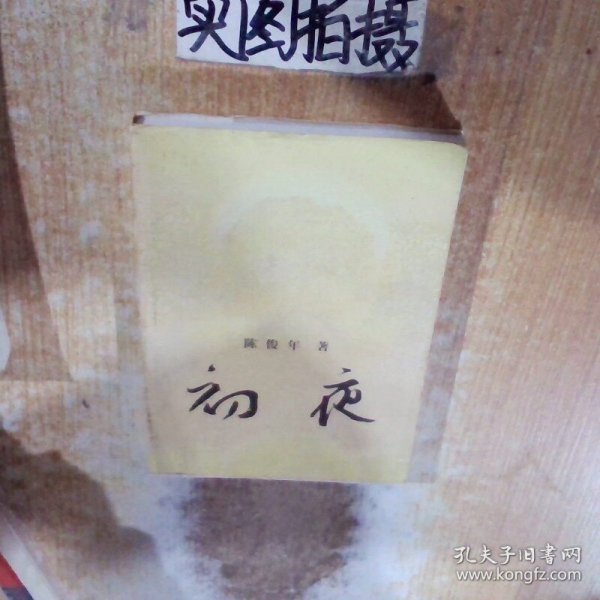 实图拍摄
陈俊年 著
初夜
孔夫子旧书网
www.kongfz.com